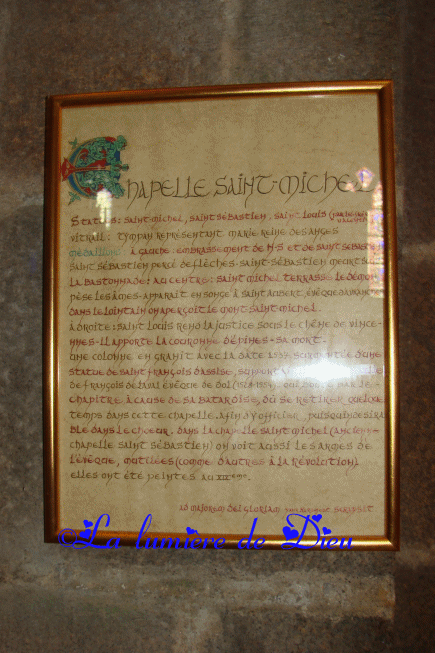 Chapelle Saint-Michel
Statues: Saint Michel, Saint Sébastien, Saint Louis
Vitrail: Tympan représentant Marie Reine des Anges
Médaillons: à gauche: embrassement de N-S et de Saint Sébastien
Saint Sébastien percé de flèches. Saint Sébastien meurt sous
la bastonnade: au centre: Saint Michel terrasse le démon
pèse les âmes. Apparaît en songe à Saint Aubert, évêque d'Avranches
dans le lointain on aperçoit le Mont-Saint-Michel.
À droite: Saint Louis rend la justice sous le chêne de Vincen-
nes. Il apporte la couronne d'épines. Sa mort.
Une colonne en granit avec la date surmontée d'une
statue de Saint François d'Assise, support
de François de Laval évêque de Dol (1528-1554). Qui, par le
chapitre à cause de sa batardise, dû se retirer quelque
temps dans cette chapelle. Afin d'y officier, puisqu'indésira-
ble dans le choeur. Dans la chapelle Saint Michel (ancienne
chapelle Saint Sébastien) on voit aussi les armes de
l'évêque, mutilées (comme d'autres à la Révolution)
elles ont été peintes au XIXème.
Ad majorem Dei gloriam scripsit
©La lumière de Dieu